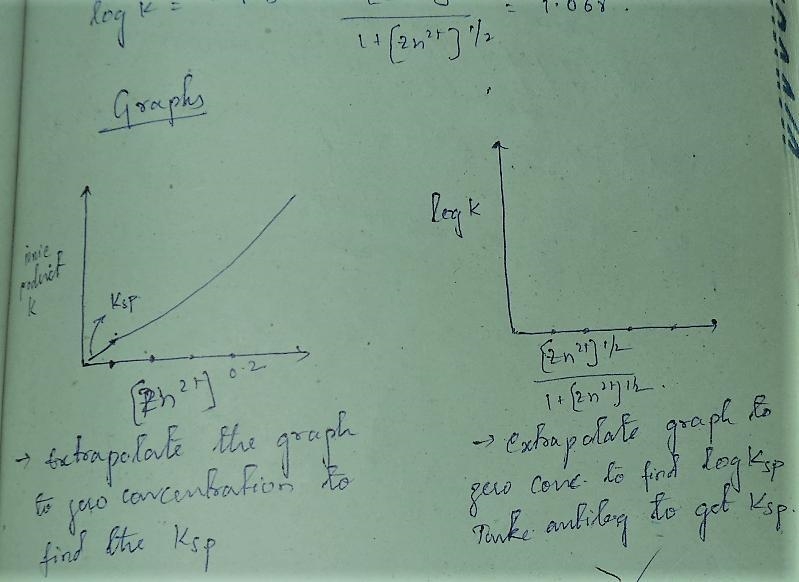 log K =
= 1.068.
1+[Zn²⁺]^1/2
Graphs
ionic
product
K
Ksp
[Zn²⁺]
0.2
→ Extrapolate the graph
to zero concentration to
find the Ksp
log K
[Zn²⁺]^1/2
1+[Zn²⁺]^1/2.
→ Extrapolate graph to
zero conc. to find log Ksp
Take antilog to get Ksp.